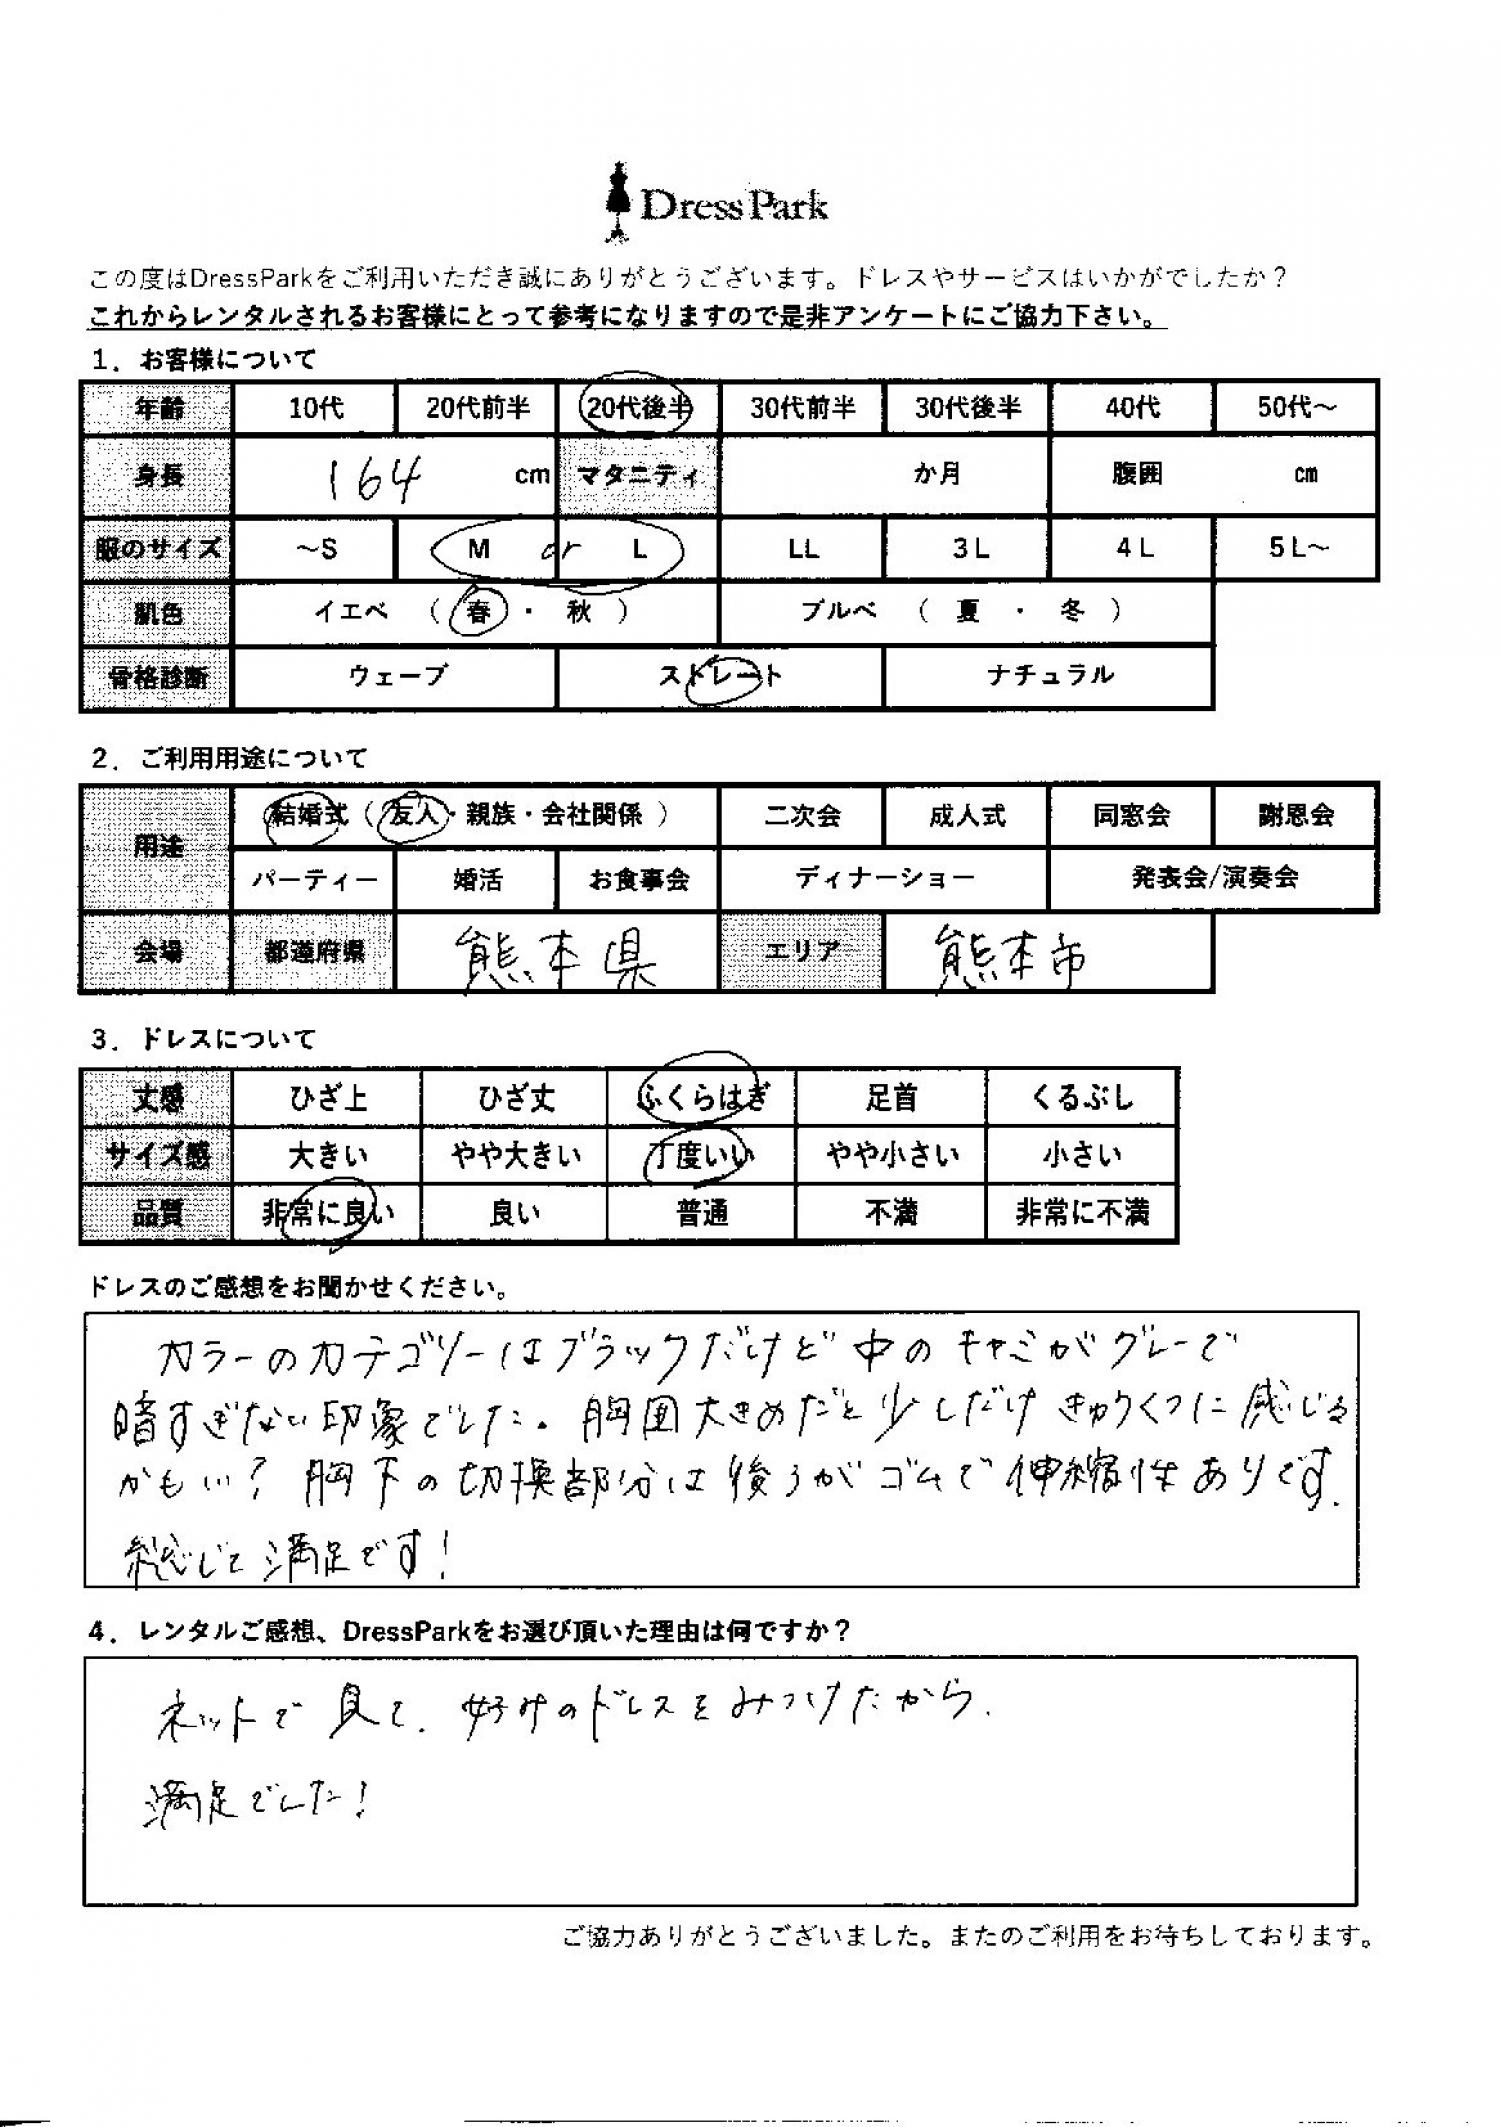 DressPark
この度はDressParkをご利用いただき誠にありがとうございます。ドレスやサービスはいかがでしたか？
これからレンタルされるお客様にとって参考になりますので是非アンケートにご協力下さい。
1．お客様について
年齢 10代 20代前半 20代後半 30代前半 30代後半 40代 50代～
身長 164 cm マタニティ か月 腹囲 cm
服のサイズ ～S M or L LL 3L 4L 5L～
肌色 イエベ （ 春 ・ 秋 ） ブルベ （ 夏 ・ 冬 ）
骨格診断 ウェーブ ストレート ナチュラル
2．ご利用用途について
用途 結婚式（ 友人・親族・会社関係 ） 二次会 成人式 同窓会 謝恩会
パーティー 婚活 お食事会 ディナーショー 発表会/演奏会
会場 都道府県 熊本県 エリア 熊本市
3．ドレスについて
丈感 ひざ上 ひざ丈 ふくらはぎ 足首 くるぶし
サイズ感 大きい やや大きい 丁度いい やや小さい 小さい
品質 非常に良い 良い 普通 不満 非常に不満
ドレスのご感想をお聞かせください。
カラーのカテゴリーはブラックだけど中のキャミがグレーで
暗すぎない印象でした。胸囲大きめだと少しだけきゅうくつに感じる
かもい？胸下の切換部分は後ろがゴムで伸縮性ありです.
総じて満足です！
4．レンタルご感想、DressParkをお選び頂いた理由は何ですか？
ネットで見て、好みのドレスをみつけたから.
満足でした！
ご協力ありがとうございました。またのご利用をお待ちしております。